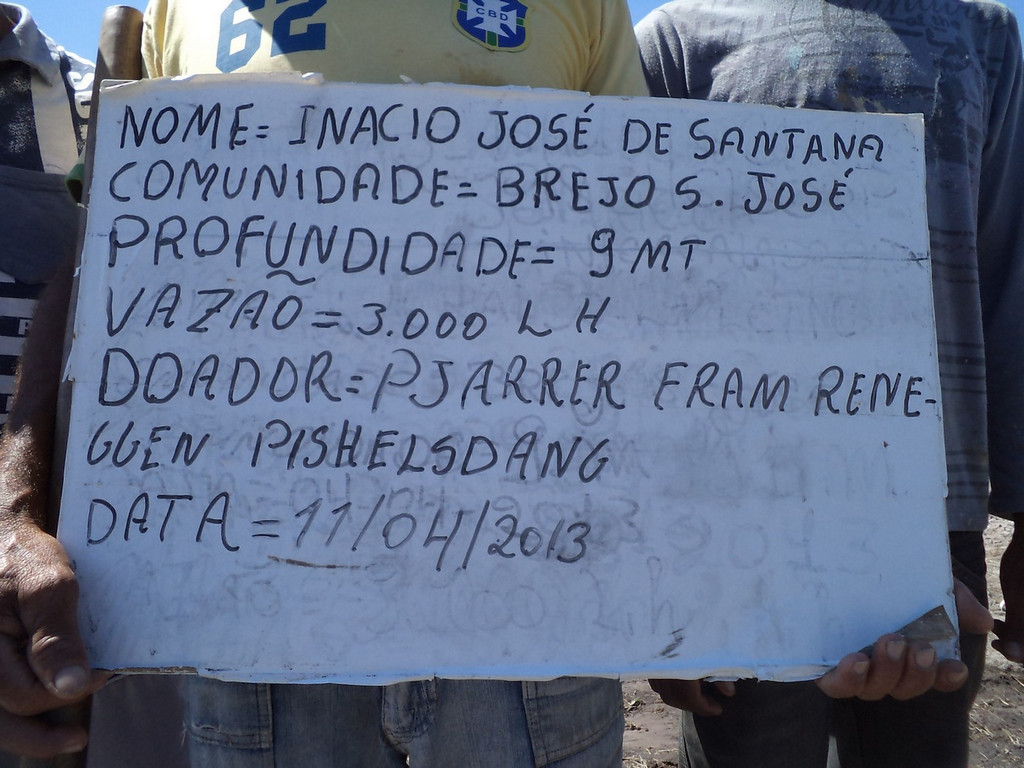 62
CBD
NOME= INACIO JOSÉ DE SANTANA
COMUNIDADE= BREJO S. JOSÉ
PROFUNDIDADE= 9 MT
VAZÃO = 3.000 L H
DOADOR= PJARRER FRAM RENE-
GGEN PISHELSDANG
DATA = 11/04/2013